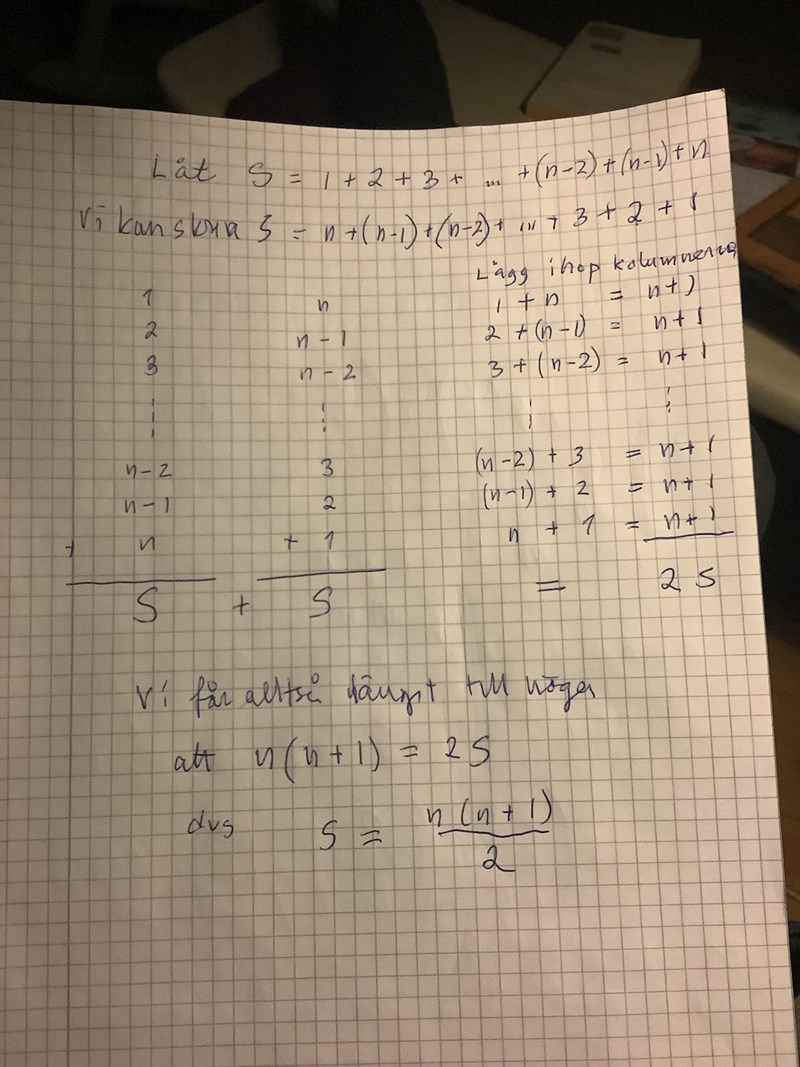 Låt S = 1 + 2 + 3 + ... + (n-2) + (n-1) + n
Vi kan skriva S = n + (n-1) + (n-2) + ... + 3 + 2 + 1
Lägg ihop kolumnerna
1 n 1 + n = n+1
2 n-1 2 + (n-1) = n+1
3 n-2 3 + (n-2) = n+1
⋮ ⋮ ⋮ ⋮
n-2 3 (n-2) + 3 = n+1
n-1 2 (n-1) + 2 = n+1
+ n + 1 n + 1 = n+1
S + S = 2S
Vi får alltså längst till höger
att n(n+1) = 2S
dvs S = n(n+1)/2